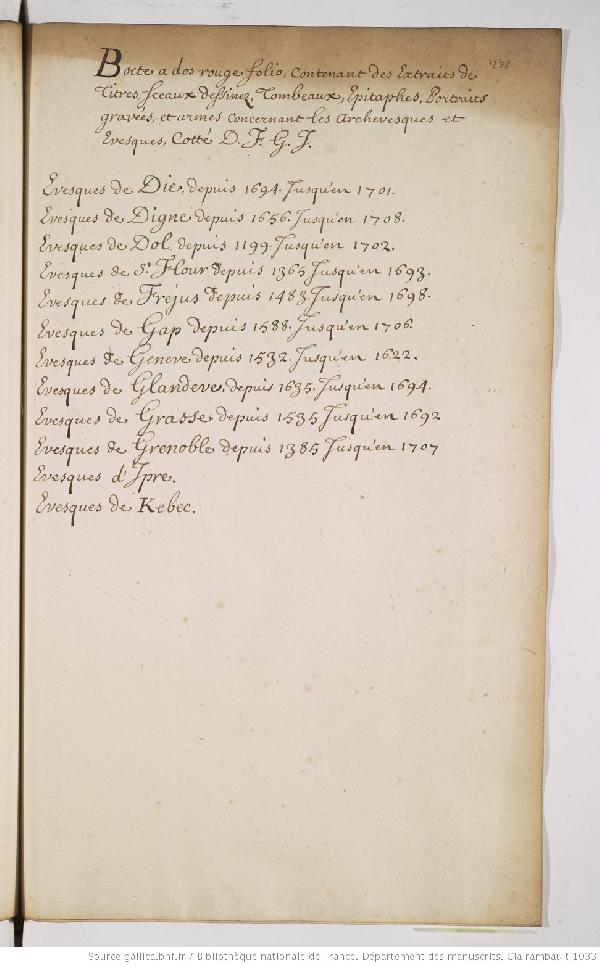 221
Boete a dos rouge folio, contenant des Extraits de
Titres, sceaux dessinez, Tombeaux, Epitaphes, Portraits
gravées, et armes concernant les Archevesques et
Evesques, Cotté D. F. G. J.
Evesques de Die, depuis 1694. Jusqu'en 1701.
Evesques de Digne depuis 1656. Jusqu'en 1708.
Evesques de Dol depuis 1199. Jusqu'en 1702.
Evesques de St. Flour depuis 1365 Jusqu'en 1693.
Evesques de Fréjus depuis 1483. Jusqu'en 1698.
Evesques de Gap depuis 1588. Jusqu'en 1706.
Evesques de Geneve depuis 1532. Jusqu'en 1622.
Evesques de Glandeve, depuis 1635. Jusqu'en 1694.
Evesques de Grasse depuis 1535 Jusqu'en 1692
Evesques de Grenoble depuis 1385 Jusqu'en 1707
Evesques d'Ipre.
Evesques de Kebec.
Source gallica.bnf.fr / Bibliothèque nationale de France. Département des manuscrits. Clairambault 1033